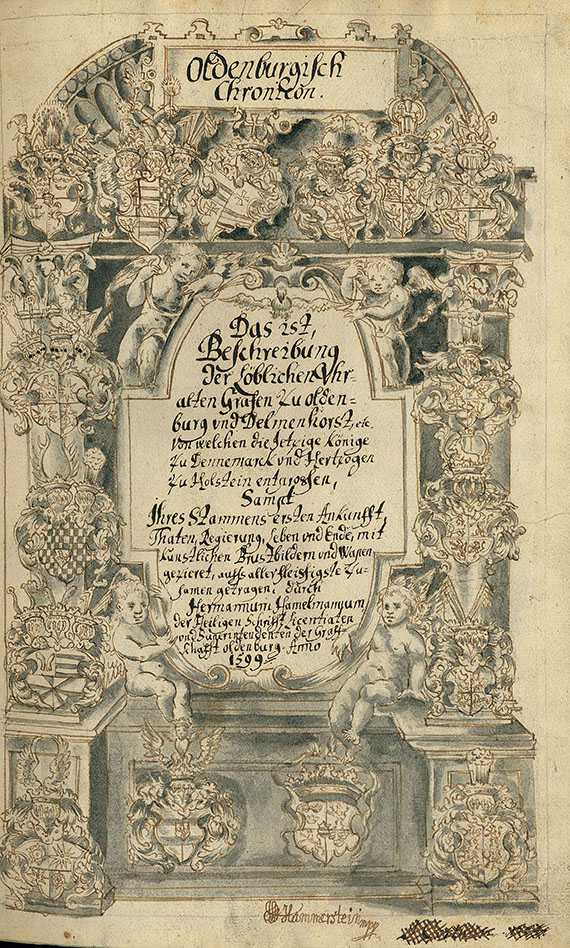 Oldenburgisch
Chronicon.
Das ist,
Beschreibung
der Löblichen Vhr-
alten Grafen zu olden-
burg vnd Delmenhorst, etc.
Von welchen die Jetzige Könige
zu Dennemarck vnd Hertzogen
zu Holstein entsprossen,
Sampt
Ihres Stammens ersten Ankunfft,
Thaten, Regierung, Leben vnd Ende, mit
künstlichen Brustbildern vnd Wapen
gezieret, auffs allerfleissigste zu-
samen getragen: durch
Hermannum Hamelmannum
der Heiligen Schrifft Licentiaten
vnd Superintendenten der Graff-
schafft oldenburg. Anno
1599
Hammerstein mpp